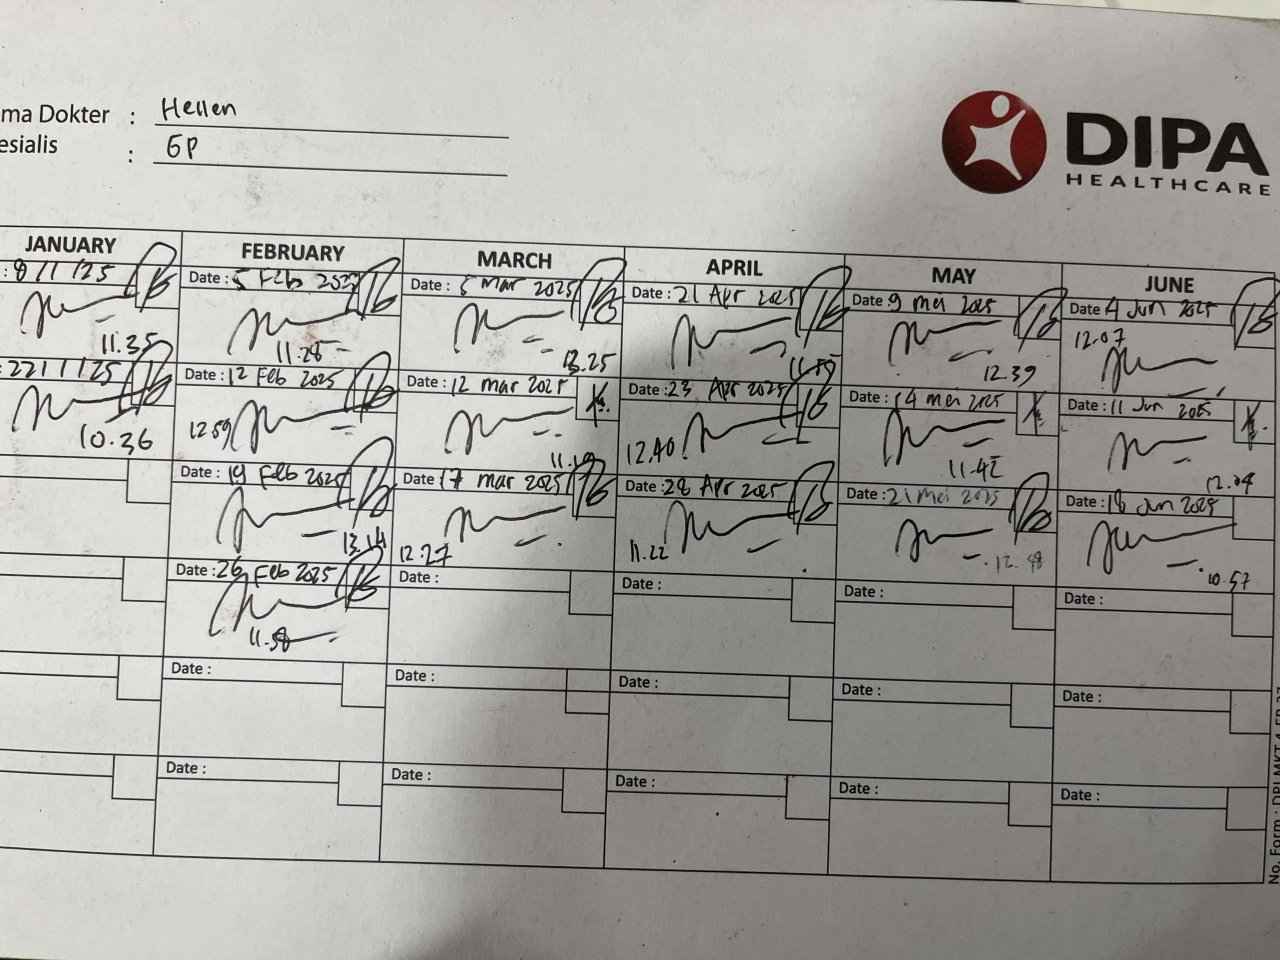 ma Dokter : Hellen
esialis : GP
DIPA
HEALTHCARE
JANUARY FEBRUARY MARCH APRIL MAY JUNE
: 8/1/25 Date : 5 Feb 2025 Date : 5 Mar 2025 Date : 21 Apr 2025 Date : 9 mei 2025 Date 4 Jun 2025
11.35 11.28 13.25 11.55 12.39 12.07
: 22/1/25 Date : 12 Feb 2025 Date : 12 mar 2025 Date : 23 Apr 2025 Date : 14 mei 2025 Date : 11 Jun 2025
10.36 12.59 12.40 11.42 12.04
Date : 19 Feb 2025 Date 17 mar 2025 Date : 28 Apr 2025 Date : 21 Mei 2025 Date : 18 Jun 2025
13.14 12.27 11.22 12.48 10.57
Date : 26 Feb 2025 Date : Date : Date : Date :
11.58
Date : Date : Date : Date : Date :
Date : Date : Date : Date : Date :
No. Form : DPI.MKT.4.FR